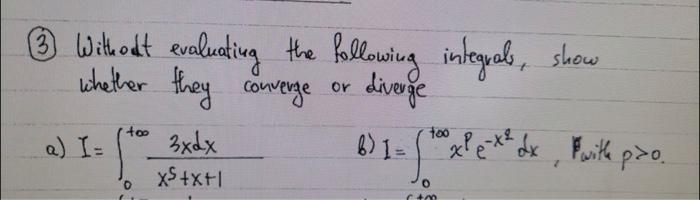 ③ Without evaluating the following integrals, show
whether they converge or diverge
a) I = ∫₀^{+∞} 3xdx / (x⁵+x+1)    b) I = ∫₀^{+∞} xᵖ e^{-x²} dx, with p>0.